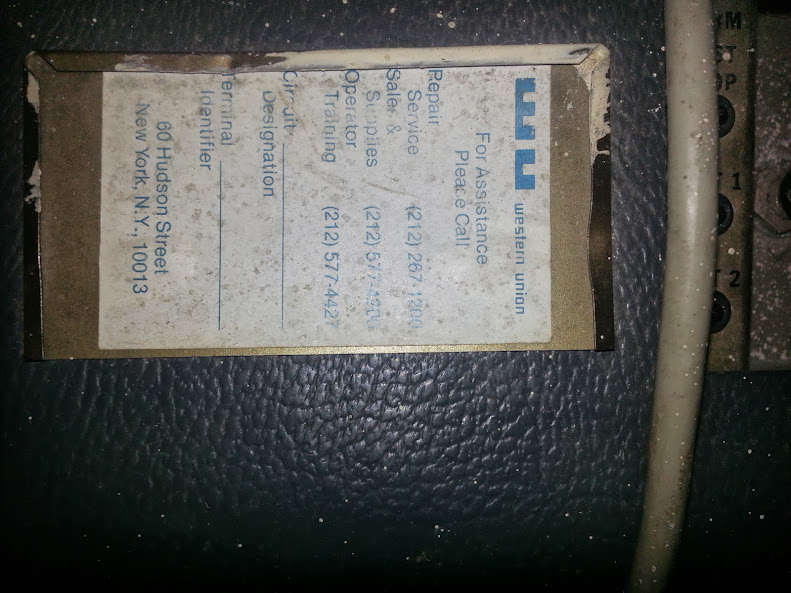 wu western union
For Assistance
Please Call
Repair
Service (212) 267-1200
Sales &
Supplies (212) 577-
Operator
Training (212) 577-4427
Circuit
Designation
Terminal
Identifier
60 Hudson Street
New York, N.Y., 10013
RM
OP
T 1
T 2